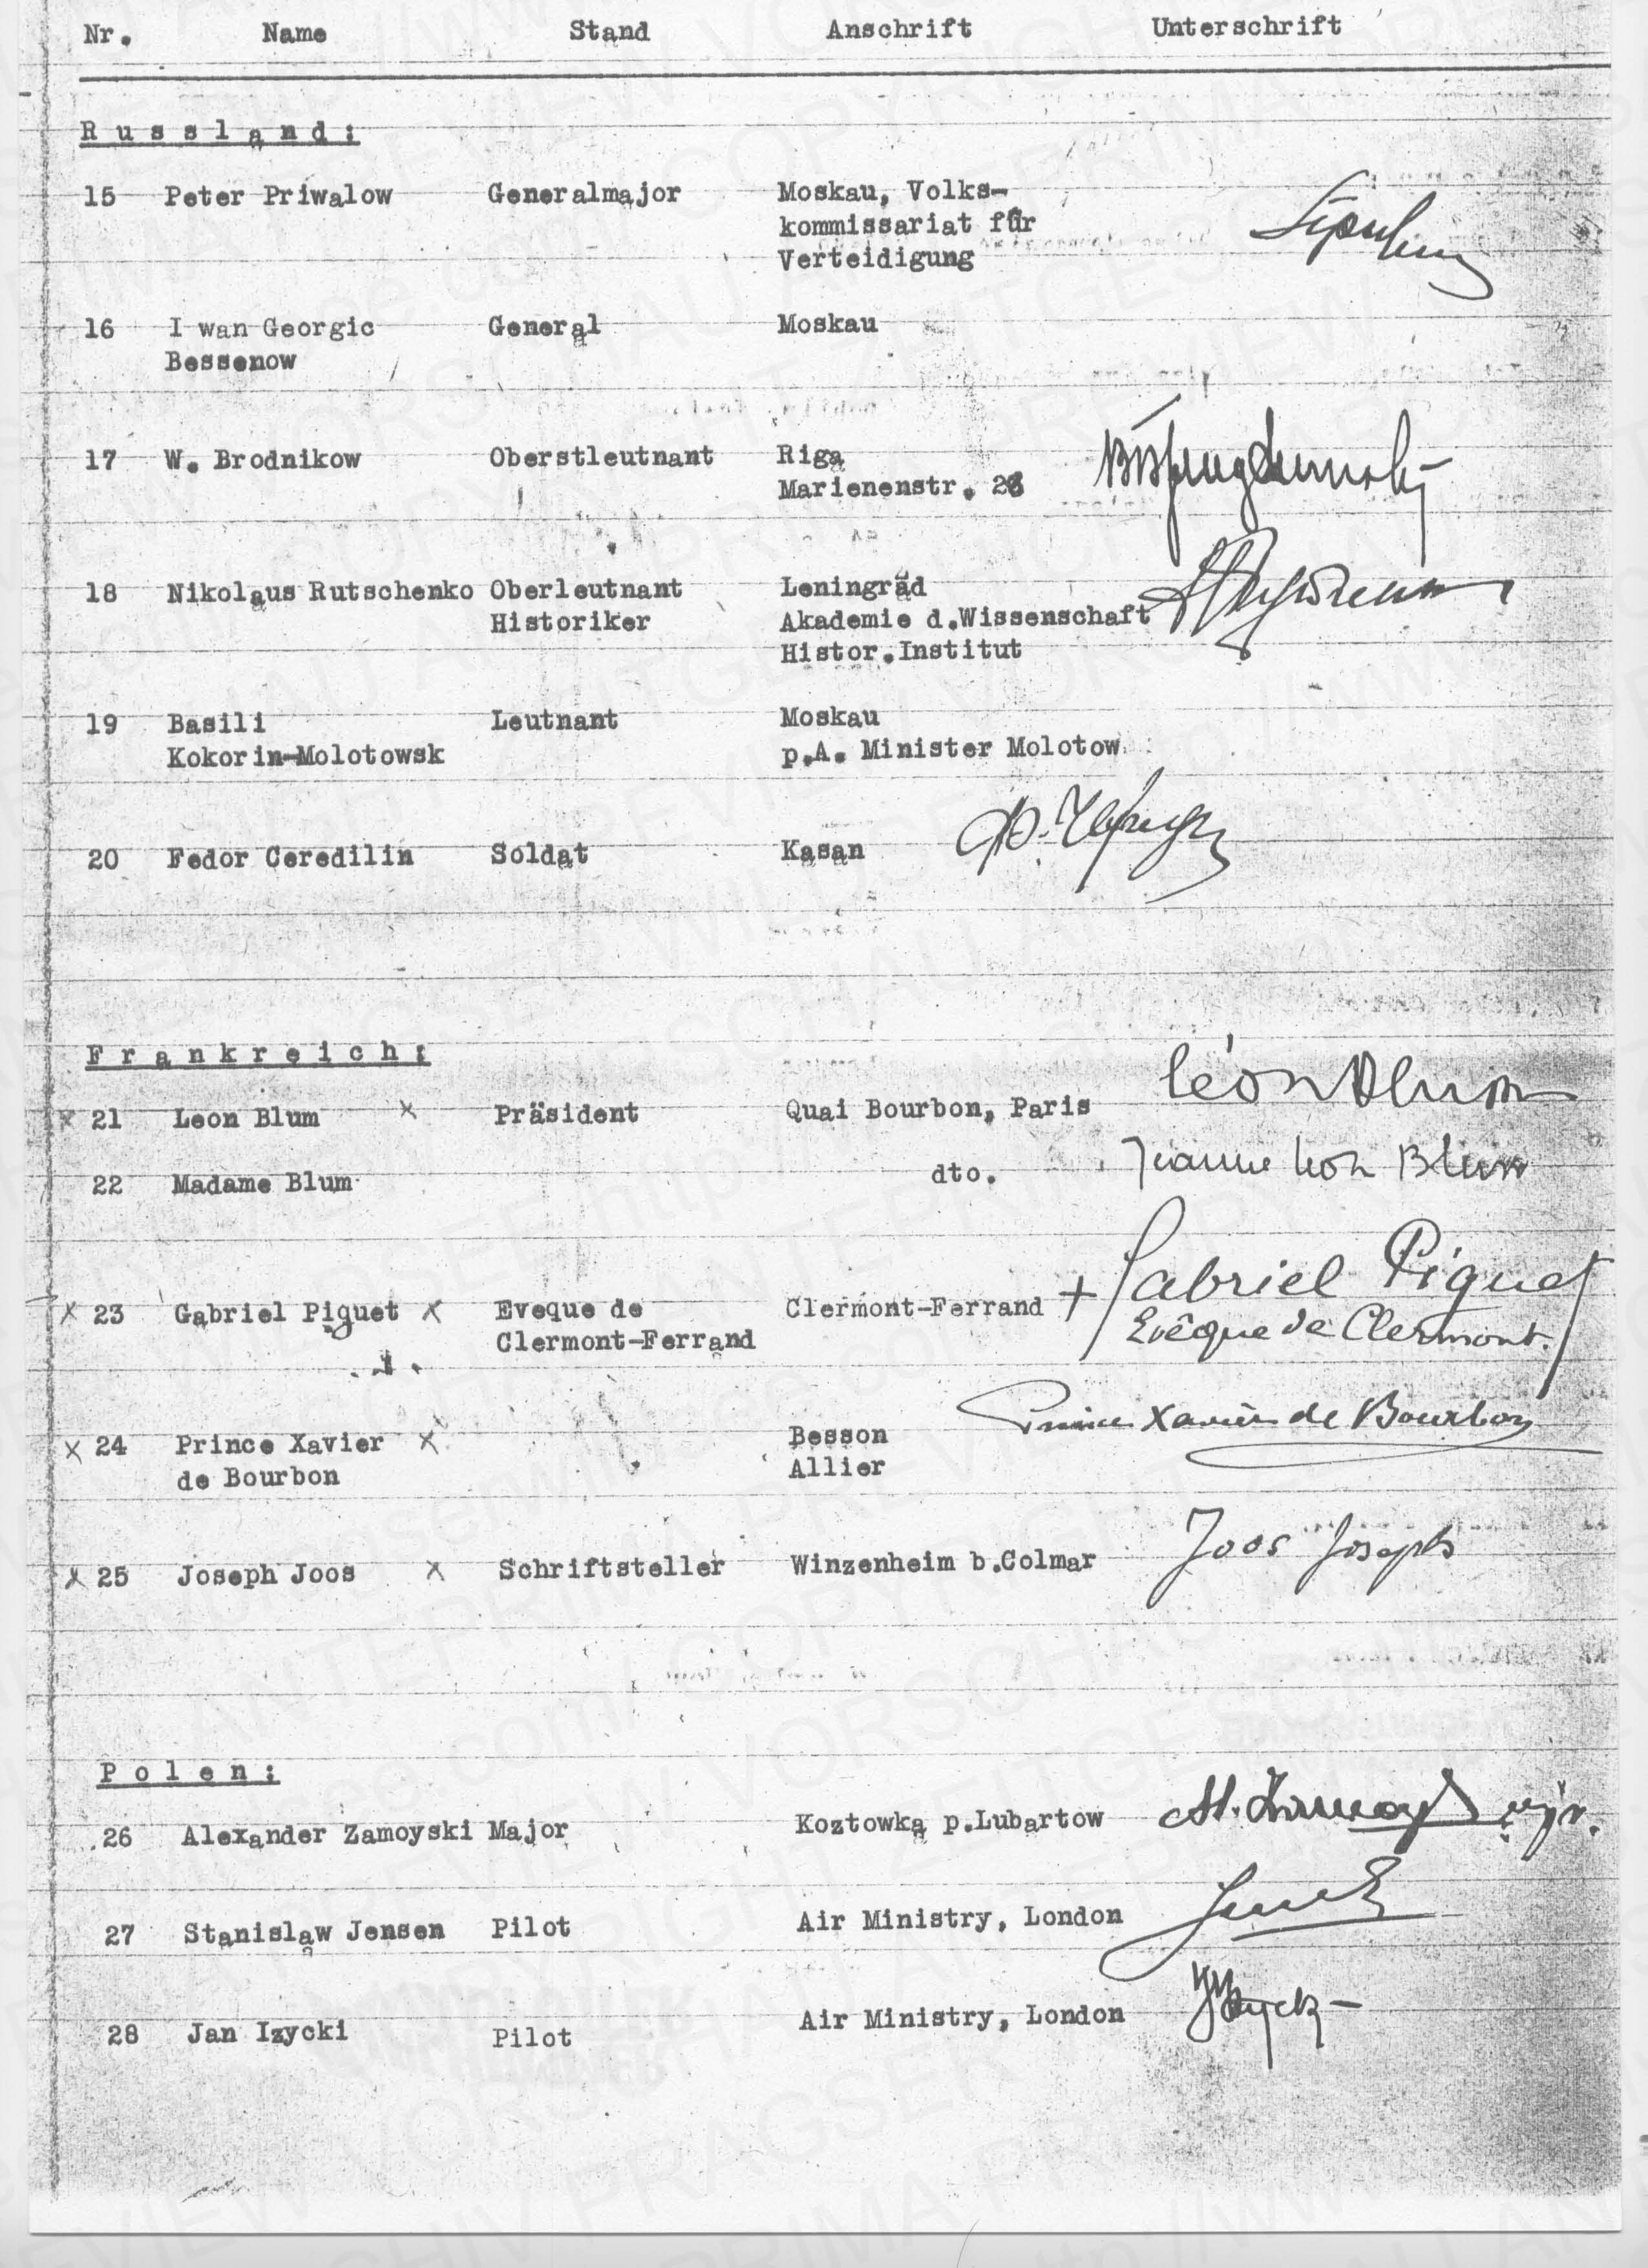 Nr. Name Stand Anschrift Unterschrift
Russland:
15 Peter Priwalow Generalmajor Moskau, Volks-
kommissariat für
Verteidigung
16 I wan Georgic General Moskau
Bessenow
17 W. Brodnikow Oberstleutnant Riga
Marienenstr. 28
18 Nikolaus Rutschenko Oberleutnant Leningrad
Historiker Akademie d.Wissenschaft
Histor.Institut
19 Basili Leutnant Moskau
Kokorin-Molotowsk p.A. Minister Molotow
20 Fedor Ceredilin Soldat Kasan
Frankreich:
x 21 Leon Blum x Präsident Quai Bourbon, Paris Léon Blum
22 Madame Blum dto. Jeanne Léon Blum
x 23 Gabriel Piguet x Eveque de Clermont-Ferrand + Gabriel Piguet
Clermont-Ferrand Evêque de Clermont.
x 24 Prince Xavier x Besson Prince Xavier de Bourbon
de Bourbon Allier
x 25 Joseph Joos x Schriftsteller Winzenheim b.Colmar Joos Joseph
Polen:
26 Alexander Zamoyski Major Koztowka p.Lubartow
27 Stanislaw Jensen Pilot Air Ministry, London
28 Jan Izycki Pilot Air Ministry, London